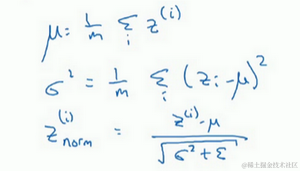 μ: 1/m Σ_i z^(i)
σ² = 1/m Σ_i (z_i - μ)²
z_norm^(i) = (z^(i) - μ) / √(σ² + Σ)
@稀土掘金技术社区